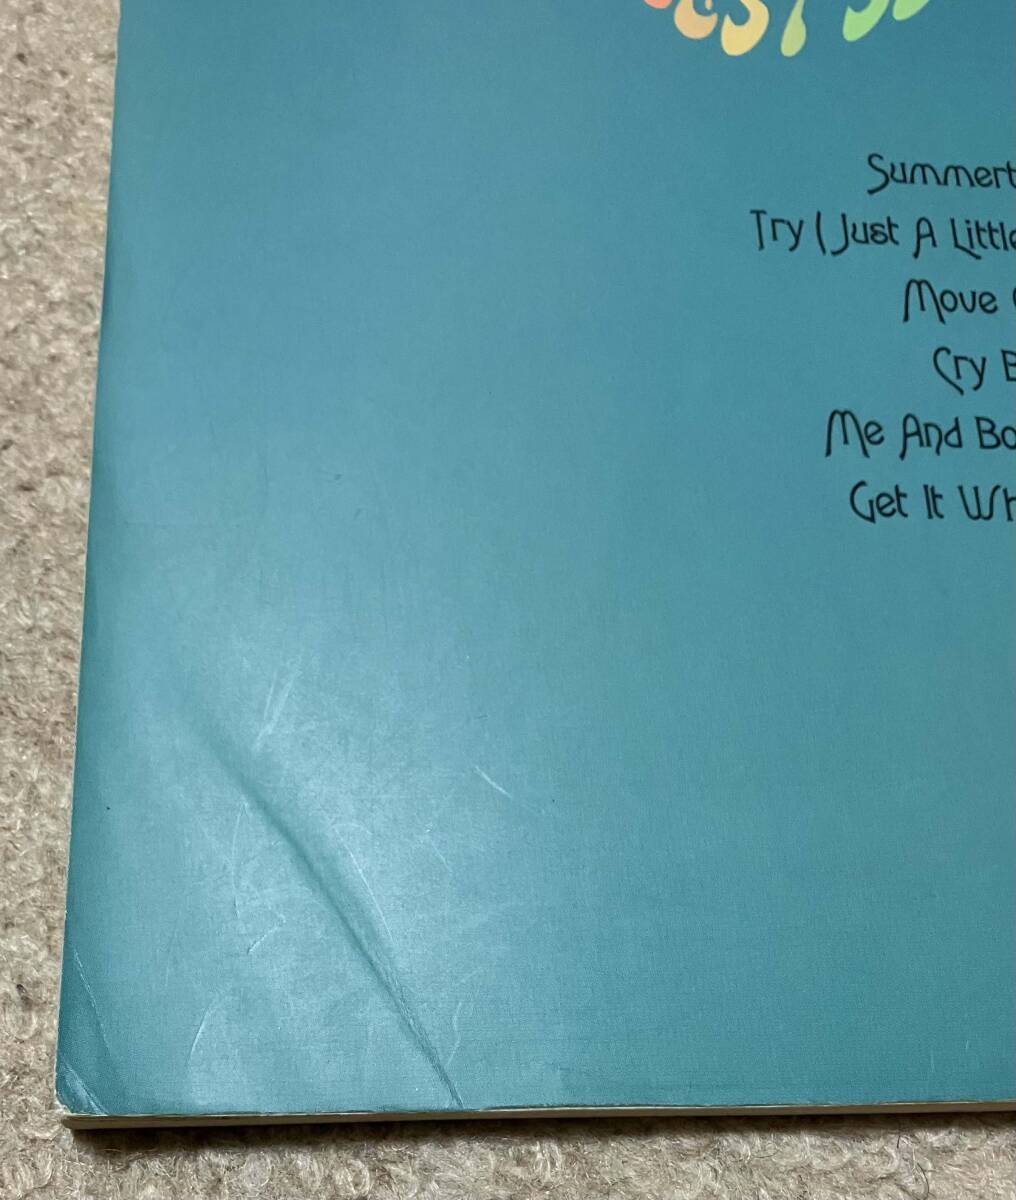 Summert
Try (Just A Little
Move
Cry B
Me And Bo
Get It Wh